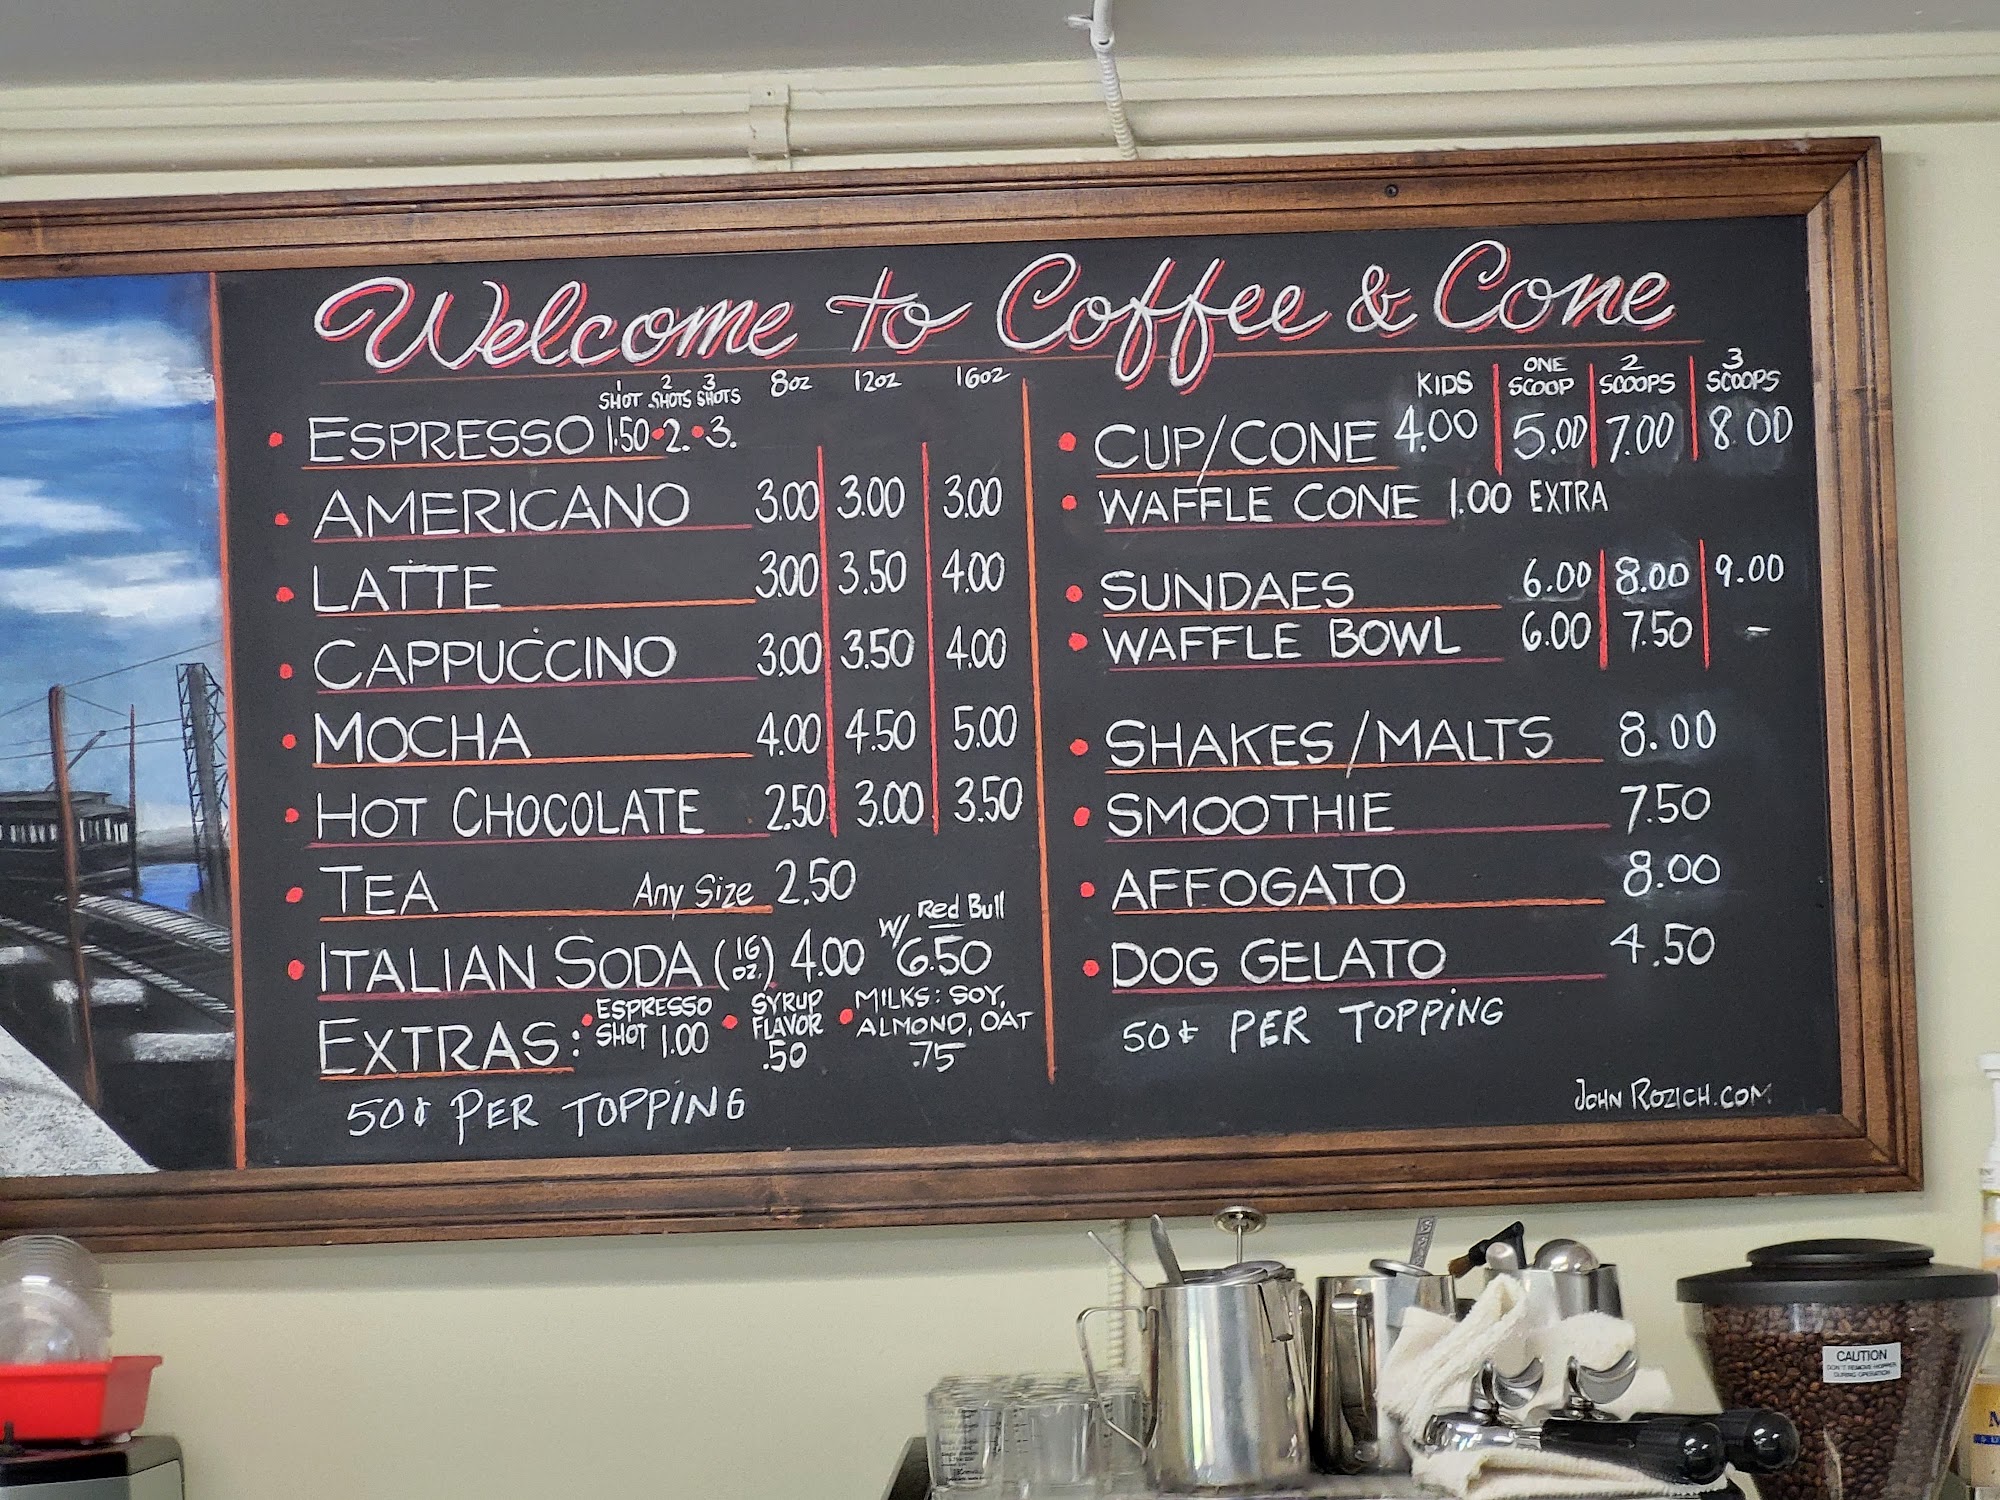 Welcome to Coffee & Cone
1 SHOT 2 SHOTS 3 SHOTS 8oz 12oz 16oz
ESPRESSO 1.50 • 2. • 3.
AMERICANO 3.00 3.00 3.00
LATTE 3.00 3.50 4.00
CAPPUCCINO 3.00 3.50 4.00
MOCHA 4.00 4.50 5.00
HOT CHOCOLATE 2.50 3.00 3.50
TEA Any Size 2.50
ITALIAN SODA (16 oz.) 4.00 w/ Red Bull 6.50
EXTRAS: • ESPRESSO SHOT 1.00 • SYRUP FLAVOR .50 • MILKS: SOY, ALMOND, OAT .75
50¢ PER TOPPING
KIDS ONE SCOOP 2 SCOOPS 3 SCOOPS
CUP/CONE 4.00 5.00 7.00 8.00
WAFFLE CONE 1.00 EXTRA
SUNDAES 6.00 8.00 9.00
WAFFLE BOWL 6.00 7.50 -
SHAKES/MALTS 8.00
SMOOTHIE 7.50
AFFOGATO 8.00
DOG GELATO 4.50
50¢ PER TOPPING
JOHN ROZICH.COM
CAUTION
DON'T REMOVE HOPPER
DURING OPERATION